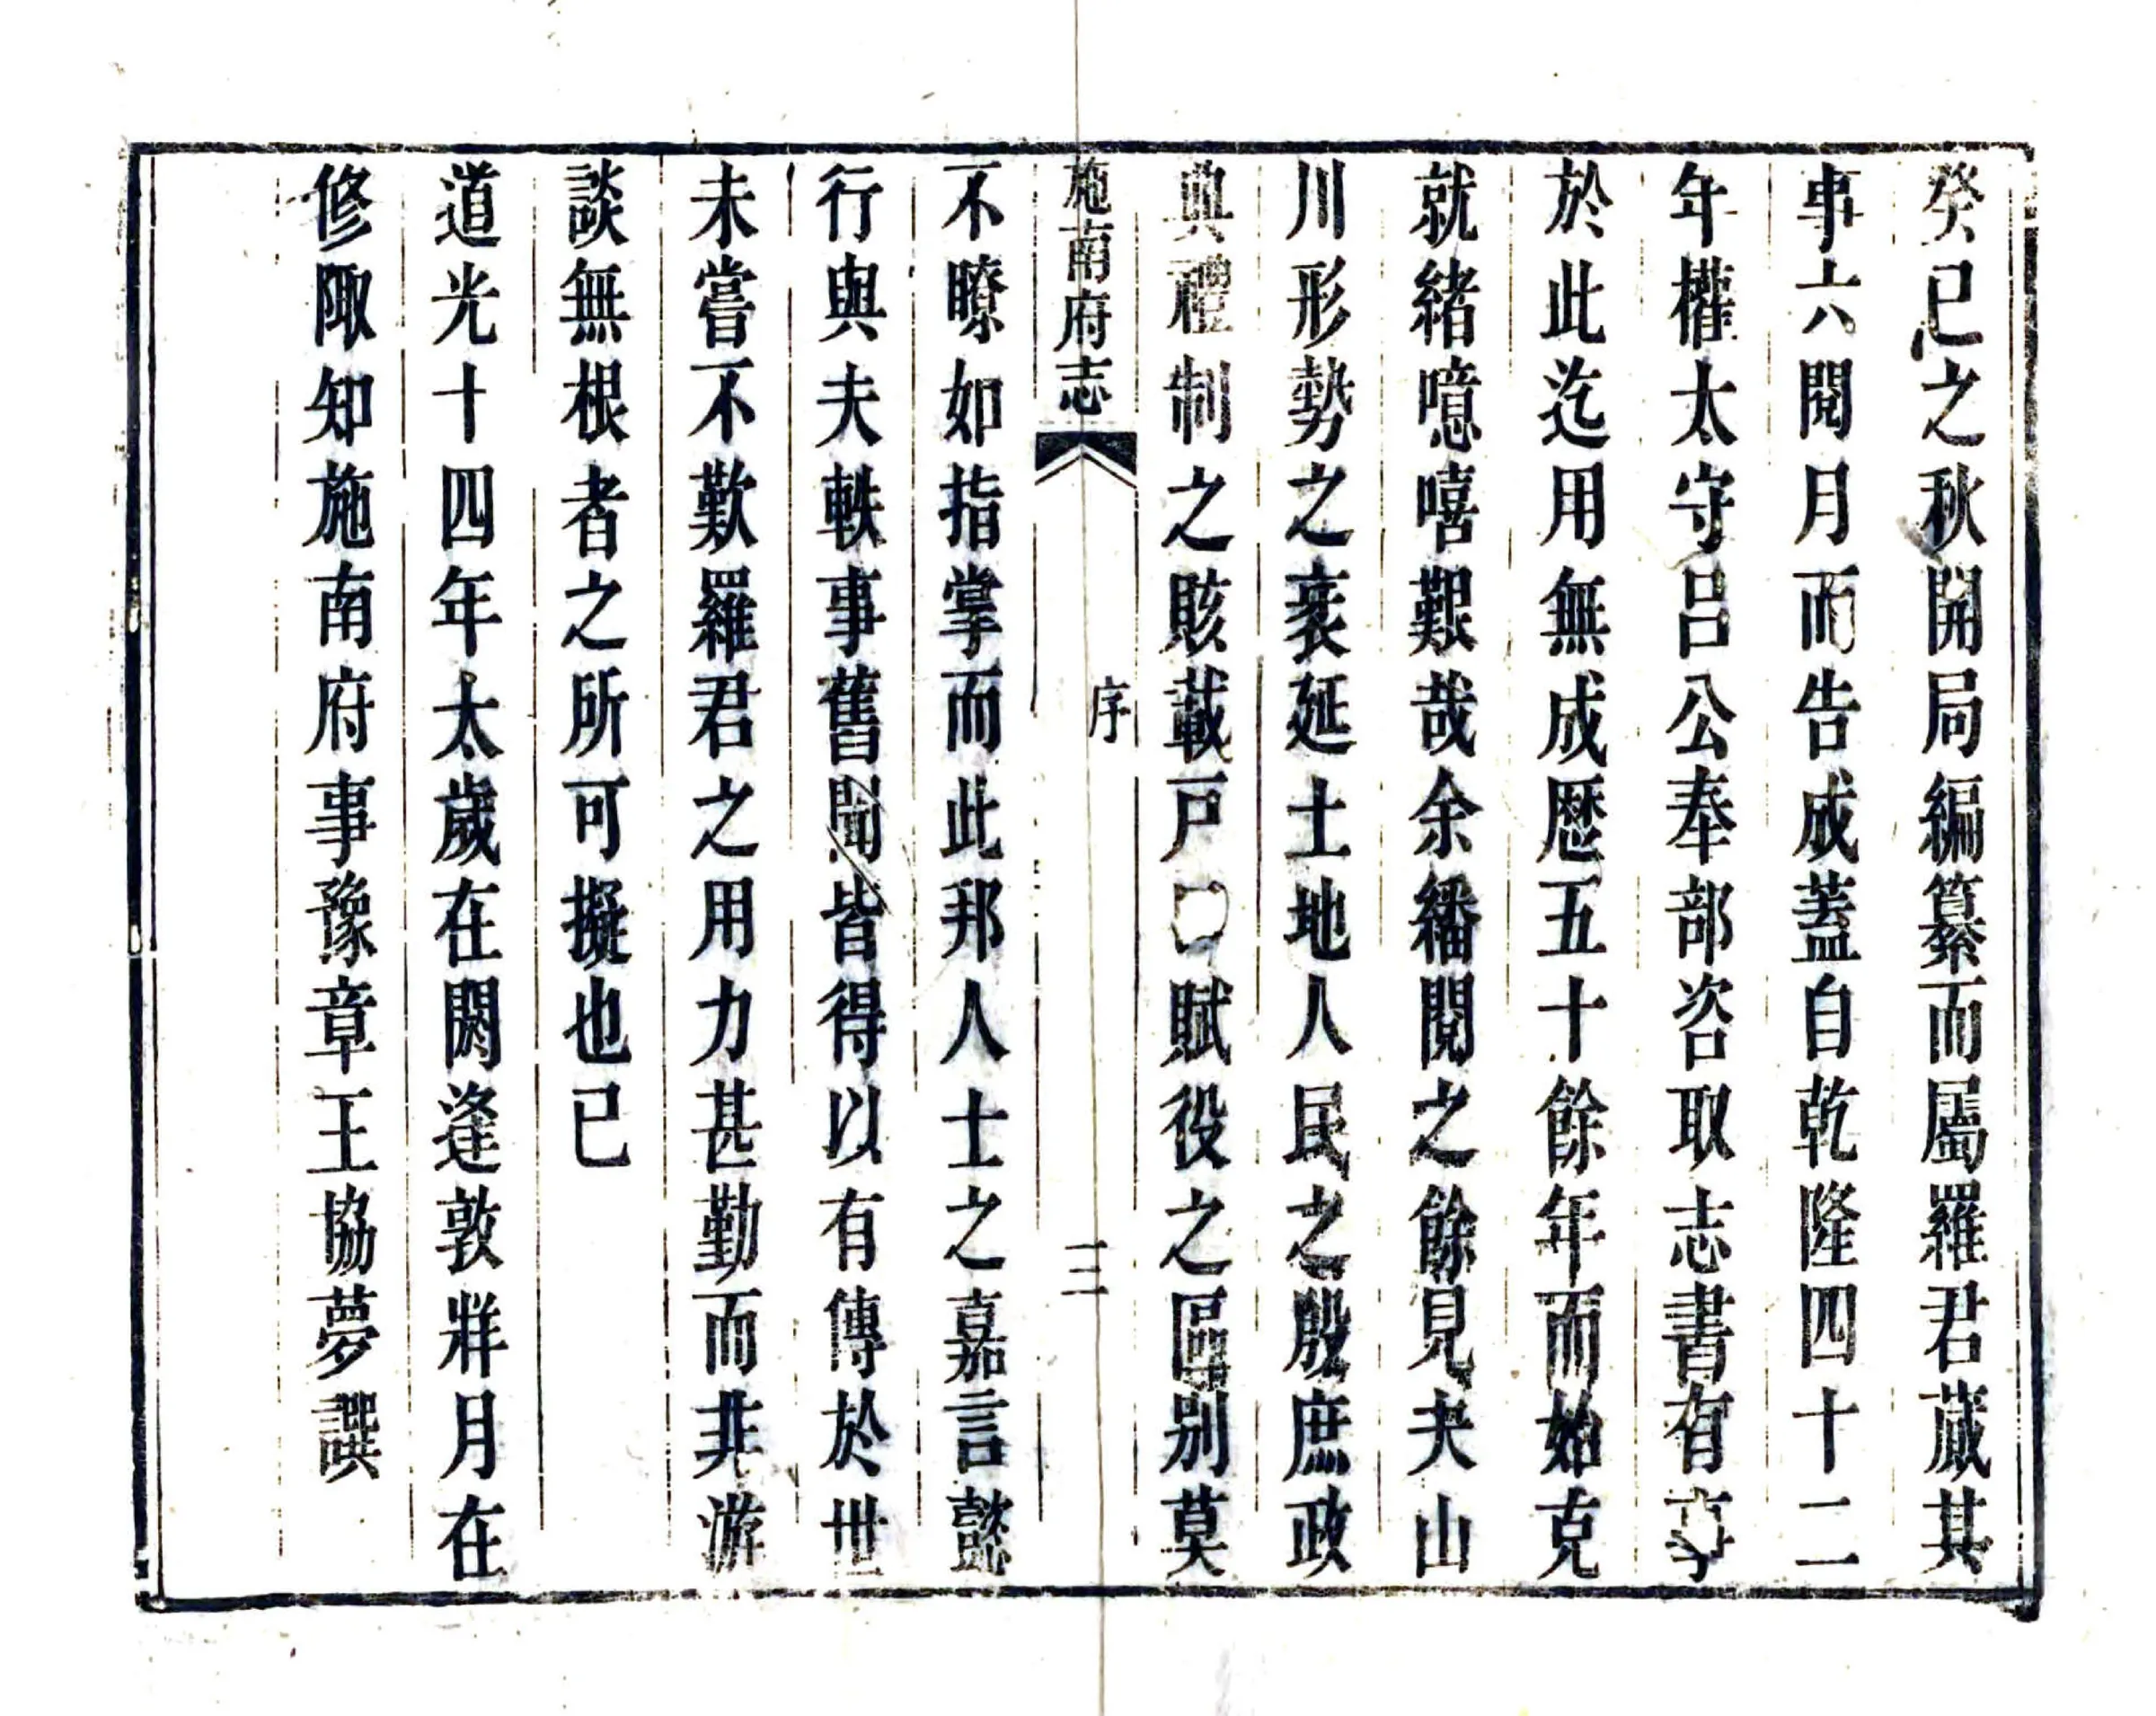 癸巳之秋開局編纂而屬羅君蕆其
事六閱月而告成蓋自乾隆四十二
年權太守呂公奉部咨取志書有事
於此迄用無成歷五十餘年而始克
就緒噫嘻艱哉余繙閱之餘見夫山
川形勢之袤延土地人民之殷庶政
典禮制之賅載戸口賦役之區別莫
施南府志 序 三
不瞭如指掌而此邦人士之嘉言懿
行與夫軼事舊聞皆得以有傳於世
未嘗不歎羅君之用力甚勤而非游
談無根者之所可擬也已
道光十四年太歲在閼逢敦牂月在
修陬知施南府事豫章王協夢譔